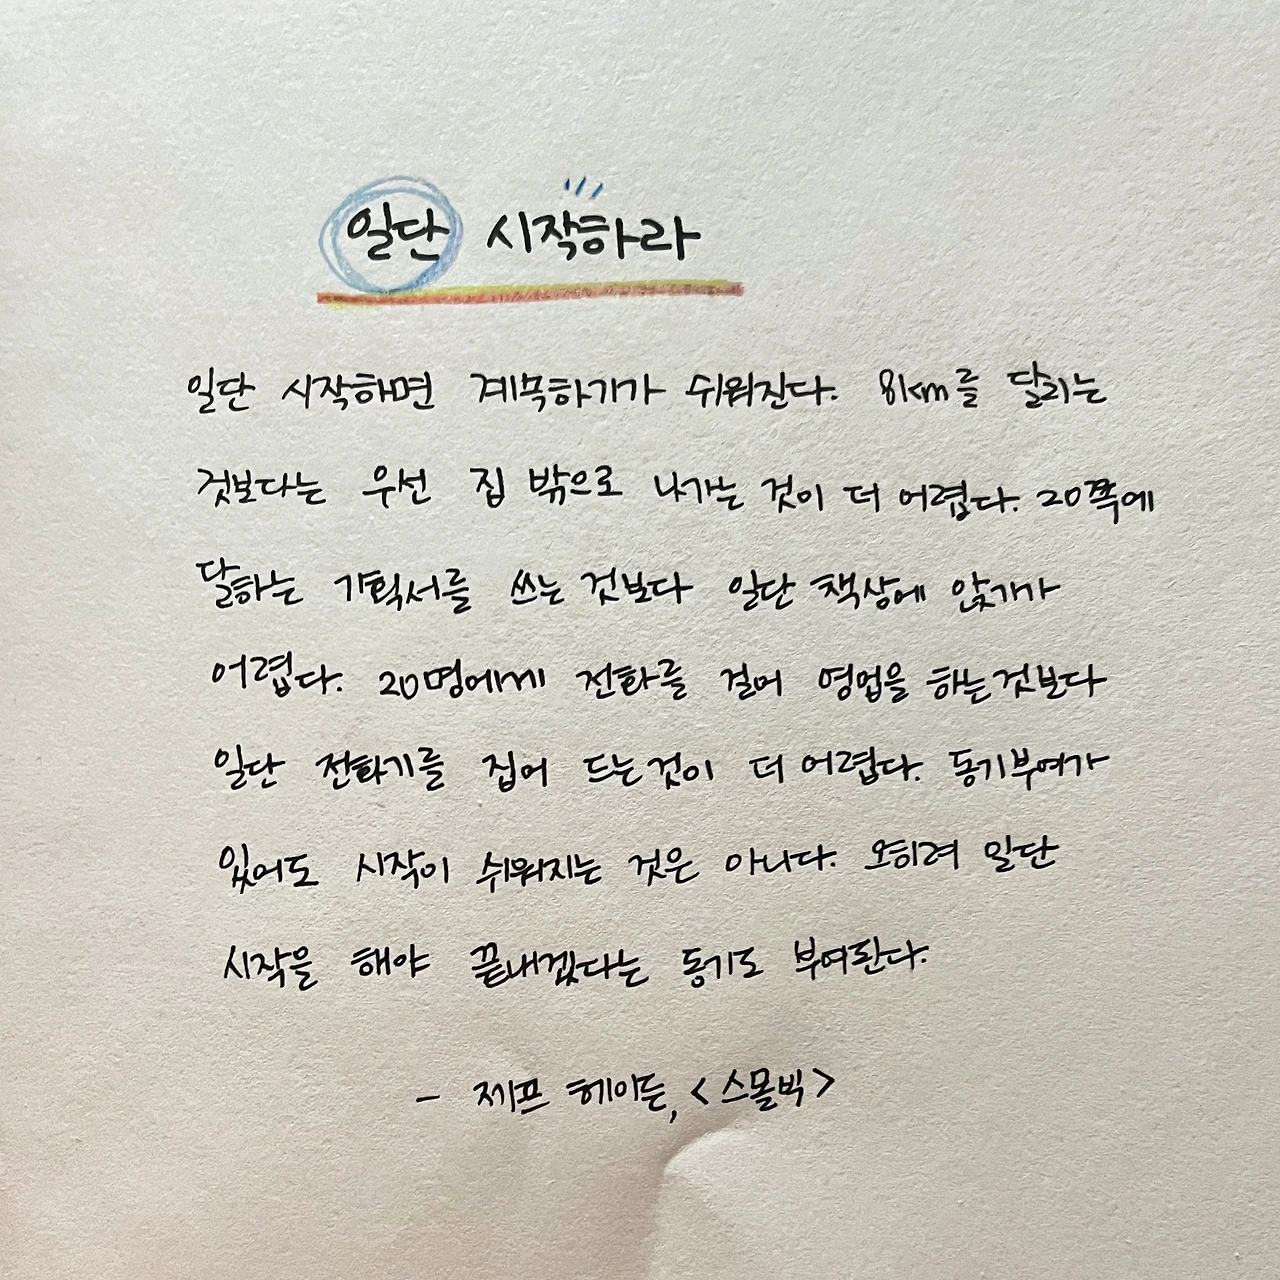 일단 시작하라
일단 시작하면 계속하기가 쉬워진다. 8km를 달리는
것보다는 우선 집 밖으로 나가는 것이 더 어렵다. 20쪽에
달하는 기획서를 쓰는 것보다 일단 책상에 앉기가
어렵다. 20명에게 전화를 걸어 영업을 하는것보다
일단 전화기를 집어 드는것이 더 어렵다. 동기부여가
있어도 시작이 쉬워지는 것은 아니다. 오히려 일단
시작을 해야 끝내겠다는 동기도 부여된다.
- 제프 헤이든, <스몰빅>